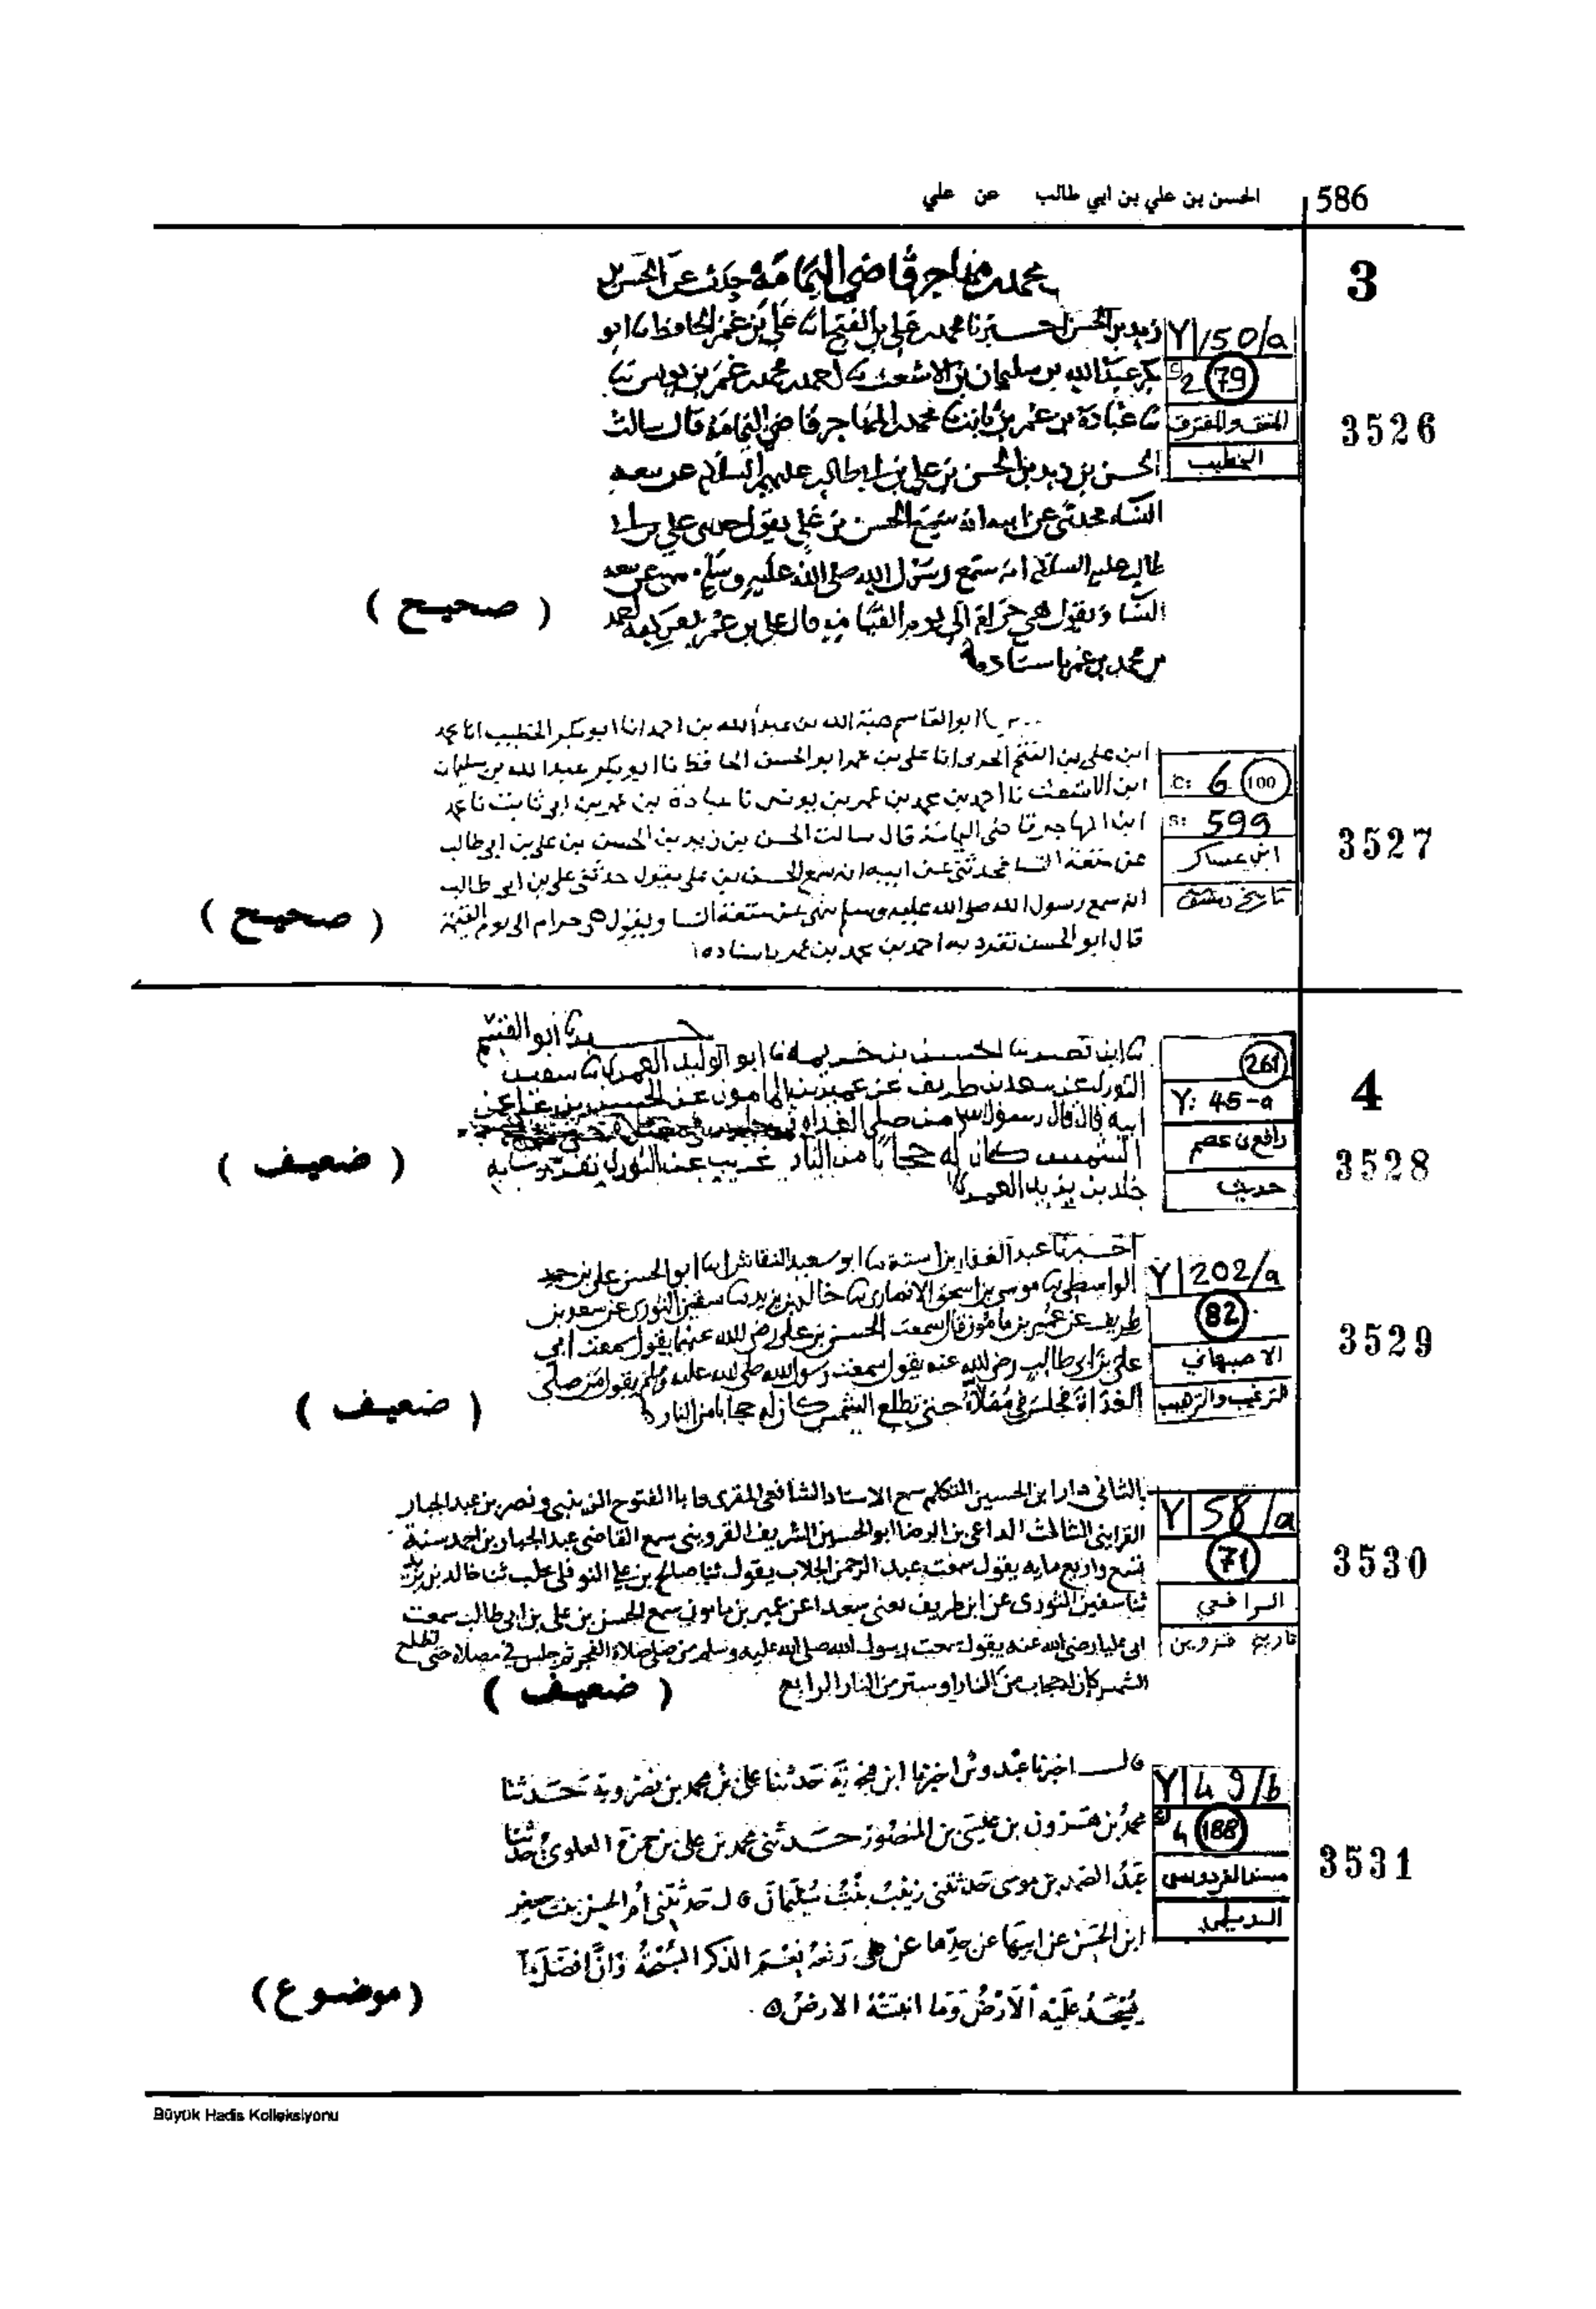 586
الحسن بن علي بن ابي طالب عن علي
3
محمد بن مهاجر قاضي اليمامة حدث عن الحسن بن
زيد بن الحسن اخبرنا محمد بن علي بن الفتح نا علي بن عمر الحافظ نا ابو
بكر عبد الله بن سليمان بن الاشعث نا احمد بن محمد بن عمر بن يونس نا
نا عبادة بن عمر بن ثابت نا محمد بن المهاجر قاضي اليمامة قال سالت
الحسن بن زيد بن الحسن بن علي بن ابي طالب عليهم السلام عن متعه
النساء فحدثني عن ابيه انه سمع الحسن بن علي يقول حدثني علي بن ابي
طالب عليه السلام انه سمع رسول الله صلى الله عليه وسلم نهى عن متعه
النسا ويقول هي حرام الى يوم القيامة قال علي بن عمر تفرد به احمد
بن محمد بن عمر باسناده
Y/50/a
2 79
المتفق والمفترق
الخطيب
3526
( صحيح )
ابو القاسم هبة الله بن عبد الله بن احمد انا ابو بكر الخطيب انا محمد
ابن علي بن الفتح الحربي انا علي بن عمر ابو الحسن الحافظ نا ابو بكر عبد الله بن سليمان
ابن الاشعث نا احمد بن محمد بن عمر بن يونس نا عبادة بن عمر بن ابي ثابت نا محمد
ابن المهاجر قاضي اليمامة قال سالت الحسن بن زيد بن الحسن بن علي بن ابي طالب
عن متعة النسا فحدثني عن ابيه انه سمع الحسن بن علي يقول حدثني علي بن ابي طالب
انه سمع رسول الله صلى الله عليه وسلم نهى عن متعة النسا ويقول هي حرام الى يوم القيمة
قال ابو الحسن تفرد به احمد بن محمد بن عمر باسناده
C: 6 100
S: 599
ابن عساكر
تاريخ دمشق
3527
( صحيح )
4
حدثنا ابو القسم
نا ابن نصر نا الحسين بن خريمه نا ابو الوليد العمري نا سفين
الثوري عن سعد بن طريف عن عمير بن المامون عن الحسن بن علي عن
ابيه قال قال رسول الله من صلى الغداة
الشمس كان له حجابا من النار غريب عن الثوري تفرد به
خلد بن يزيد العمري
261
Y: 45-a
رافع بن عصم
حديث
3528
( ضعيف )
اخبرنا عبد الغفار بن اشتة نا ابو سعيد النقاش انا ابو الحسن علي بن
الواسطي نا موسى بن اسحق الانصاري نا خالد بن يزيد نا سفين الثوري عن سعد بن
طريف عن عمير بن مامون قال سمعت الحسن بن علي رضي الله عنهما يقول سمعت ابي
علي بن ابي طالب رضي الله عنه يقول سمعت رسول الله صلى الله عليه وسلم يقول من صلى
الغداة فجلس في مصلاه حتى تطلع الشمس كان له حجابا من النار
Y/202/a
82
الاصبهاني
الترغيب والترهيب
3529
( ضعيف )
بالثاني دارا بن الحسين المتكلم سمع الاستاد الشافعي المقري وابا الفتوح الزينبي ونصر بن عبد الجبار
القرايني الثالث الداعي بن الرضا ابو الحسين الشريف القزويني سمع القاضي عبد الجبار بن احمد سنة
تسع واربع مايه يقول سمعت عبد الرحمن الجلاب يقول ثنا صالح بن علي النوفلي بحلب ثنا خالد بن يزيد
ثنا سفين الثوري عن ابن طريف يعني سعدا عن عمير بن مامون سمع الحسن بن علي بن ابي طالب سمعت
ابي عليا رضي الله عنه يقول سمعت رسول الله صلى الله عليه وسلم من صلى صلاة الفجر ثم جلس في مصلاه حتى تطلع
الشمس كان له حجاب من النار او ستر من النار الرابع
Y/58/a
71
الرافعي
تاريخ قزوين
3530
( ضعيف )
قال اخبرنا عبدوس اخبرنا ابن فنجوية حدثنا علي بن محمد بن نصرويه حدثنا
محمد بن هرون بن عيسى بن المنصور حدثني محمد بن علي بن حمزة العلوي حدثنا
عبد الصمد بن موسى حدثتني زينب بنت سليمان قال حدثتني ام الحسن بنت جعفر
ابن الحسن عن ابيها عن جدها عن علي رفعه نعم المذكر السبحة وان افضل ما
يسجد عليه الارض وما انبتته الارض
Y/49/b
4 188
مسند الفردوس
الديلمي
3531
(موضوع)
Büyük Hadis Kolleksiyonu